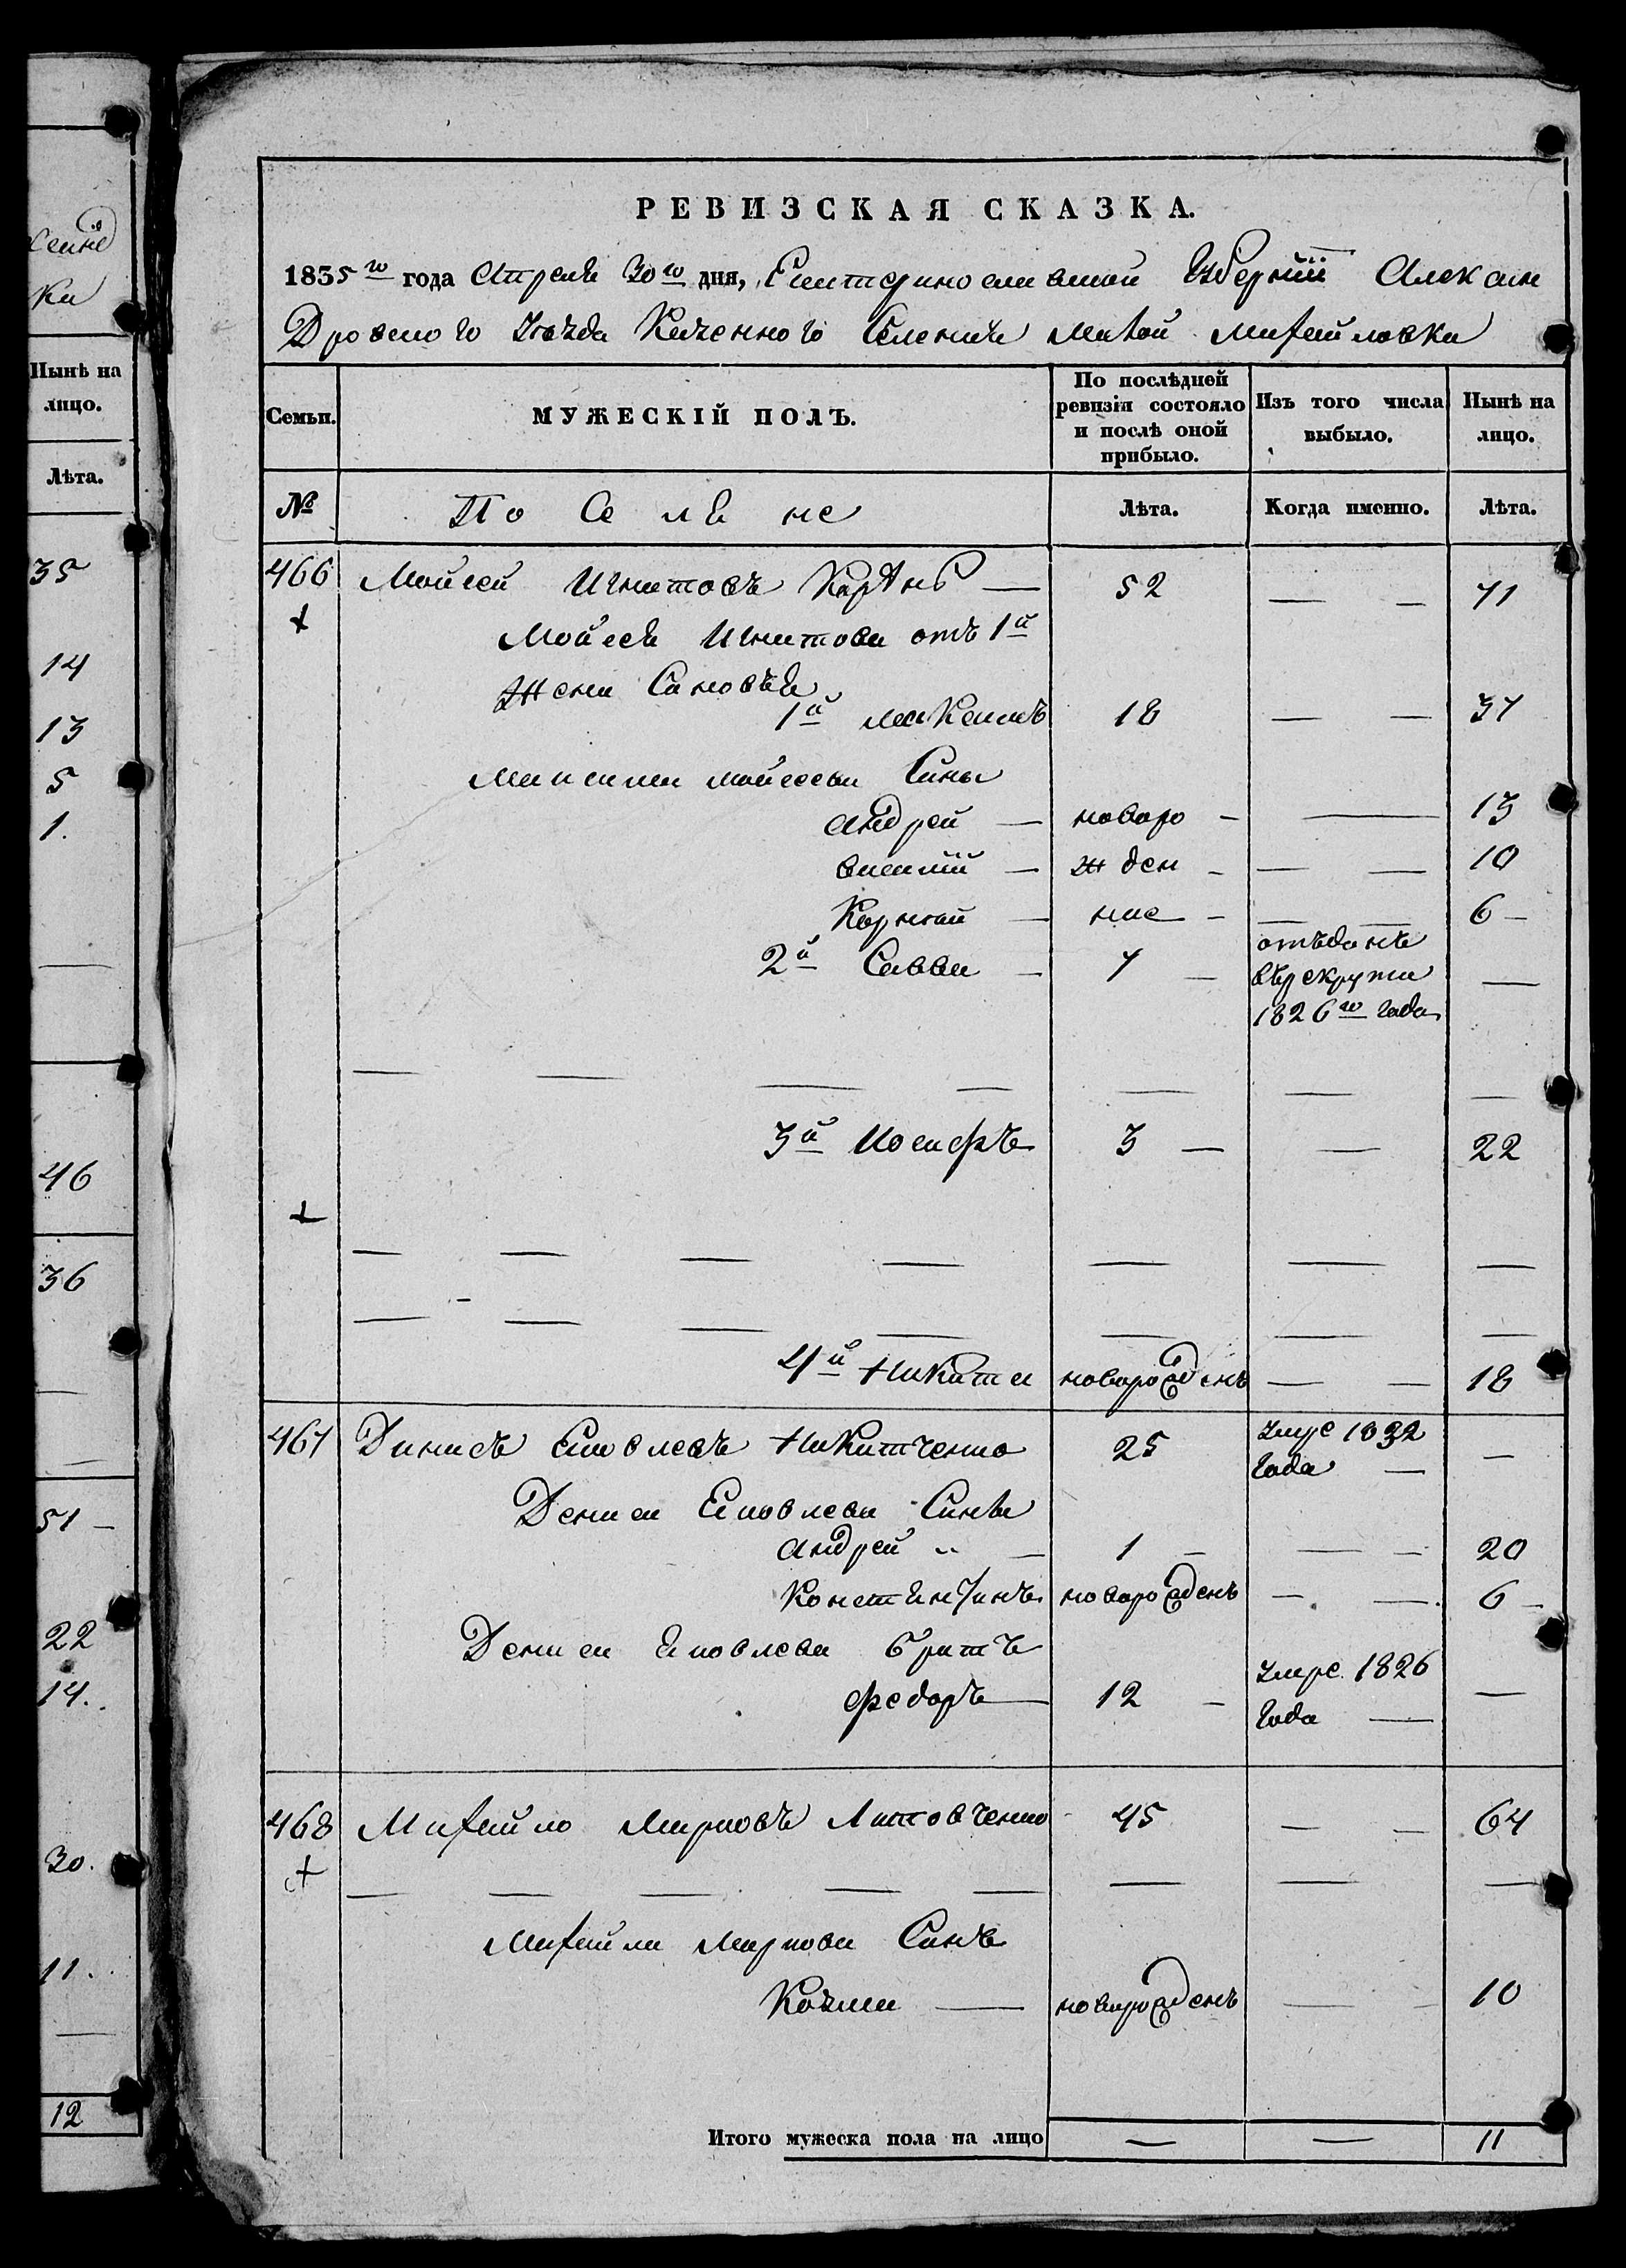 сенiе
ка
Нынѣ на
лицо.
Лѣта.
35
14
13
5
1.
46
36
51
22
14.
30.
11.
12
РЕВИЗСКАЯ СКАЗКА.
1835го года Апреля 30го дня, Екатеринославской Губернiи Алексан
Дровского Уезда Казенного Селения Малой Михайловки
Семьи.
МУЖЕСКІЙ ПОЛЪ.
По послѣдней
ревизіи состояло
и послѣ оной
прибыло.
Изъ того числа
выбыло.
Нынѣ на
лицо.
№
По Се ля не
Лѣта.
Когда именно.
Лѣта.
466 Мойсей Игнатовъ — 52 — — 71
Мойсея Игнатова отъ 1й
Жени Синовья
1й Максимъ 18 — — 37
Максима Мойсеева Сины
Андрей — новоро - — 13
Василiй — жден - — — 10
Корней — ние - — — 6 -
2й Савва — 7 — отъданъ
въ рекруты
1826го Года —
3й Иосифъ 3 — — 22
4й Никита новорожденъ — — 18
467 Динисъ Яковлевъ Никитченко 25 Умре 1832
Года — —
Дениса Яковлева Сины
Андрей — 1 — — — 20
Константинъ новорожденъ — — 6 -
Дениса Яковлева братъ
Федоръ — 12 — Умре 1826
Года — —
468 Михайло Марковъ Литовченко 45 — — 64
Михайла Маркова Синъ
Козма — новорожденъ — — 10
Итого мужеска пола на лицо — — 11